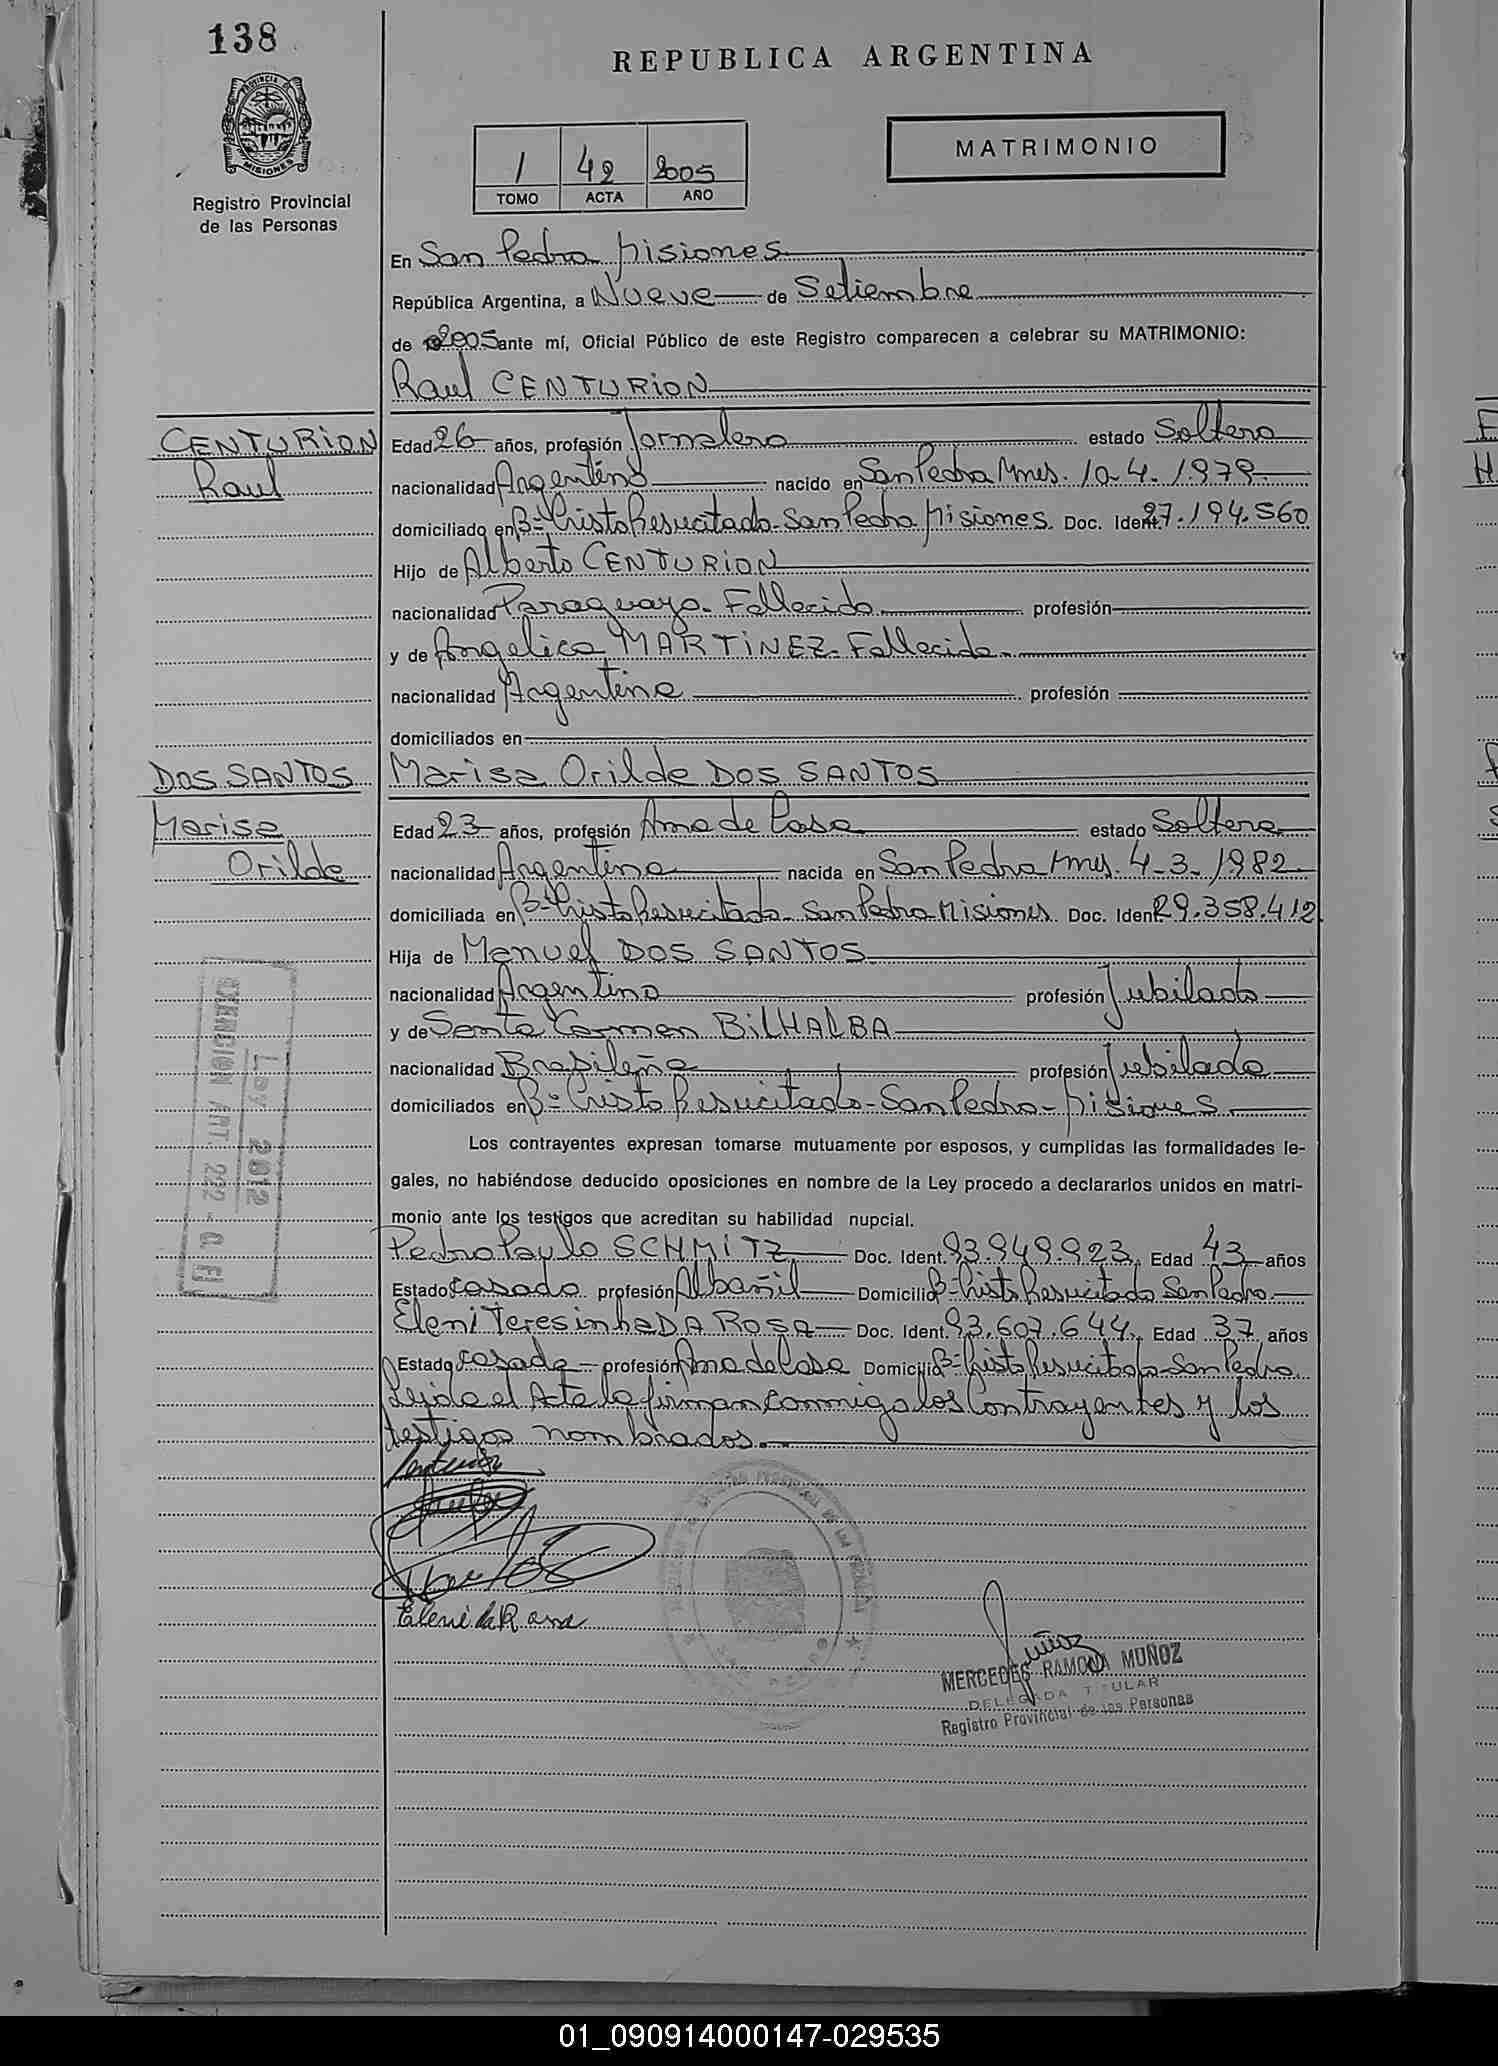 138
REPUBLICA ARGENTINA
PROVINCIA DE
MISIONES
Registro Provincial
de las Personas
MATRIMONIO
1 42 2005
TOMO ACTA AÑO
En San Pedro Misiones
República Argentina, a Nueve de Setiembre
de 2005 ante mí, Oficial Público de este Registro comparecen a celebrar su MATRIMONIO:
Raul CENTURION
CENTURION
Raul
Edad 26 años, profesión Jornalero estado Soltero
nacionalidad Argentino nacido en San Pedro Mnes. 10-4-1979
domiciliado en Bº Cristo Resucitado-San Pedro Misiones. Doc. Ident. 27.194.560
Hijo de Alberto CENTURION
nacionalidad Paraguayo-Fallecido profesión
y de Angelica MARTINEZ-Fallecida
nacionalidad Argentina profesión
domiciliados en
DOS SANTOS
Marisa
Orilde
Marisa Orilde DOS SANTOS
Edad 23 años, profesión Ama de Casa estado Soltera
nacionalidad Argentina nacida en San Pedro Mnes. 4-3-1982
domiciliada en Bº Cristo Resucitado-San Pedro Misiones Doc. Iden 29.358.412
Hija de Manuel DOS SANTOS
nacionalidad Argentino profesión Jubilado
y de Santa Carmen BILHALBA
nacionalidad Brasileña profesión Jubilada
domiciliados en Bº Cristo Resucitado-San Pedro-Misiones
Los contrayentes expresan tomarse mutuamente por esposos, y cumplidas las formalidades le-
gales, no habiéndose deducido oposiciones en nombre de la Ley procedo a declararlos unidos en matri-
monio ante los testigos que acreditan su habilidad nupcial.
Pedro Paulo SCHMITZ Doc. Ident. 93.949.923 Edad 43 años
Estado casado profesión Albañil Domicilio Bº Cristo Resucitado San Pedro
Eleni Teresinha DA ROSA Doc. Ident. 93.607.644 Edad 37 años
Estado casada profesión Ama de Casa Domicilio Bº Cristo Resucitado-San Pedro
Leida el Acta la firman conmigo los Contrayentes y los
testigos nombrados.
Ley 2012
EXENCION ART. 222 - C. F.
Eleni da Rosa
Muñoz
MERCEDES RAMONA MUÑOZ
DELEGADA TITULAR
Registro Provincial de las Personas
01_090914000147-029535